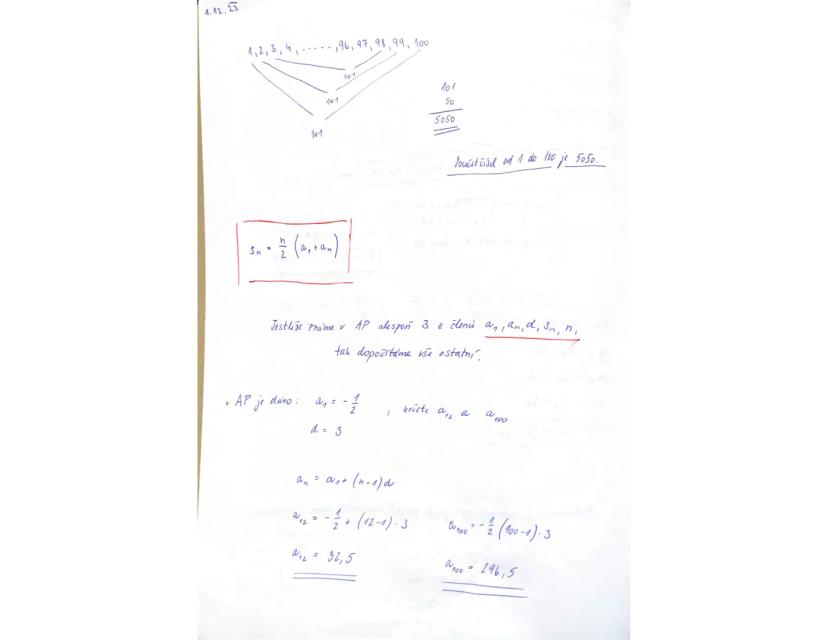 1.12.23
1, 2, 3, 4, ......, 96, 97, 98, 99, 100
101
101
101
101
50
5050
Součet čísel od 1 do 100 je 5050.
sₙ = n/2 (a₁ + aₙ)
Jestliže známe v AP alespoň 3 z členů a₁, aₙ, d, sₙ, n,
tak dopočítáme vše ostatní.
v AP je dáno: a₁ = -1/2 , určete a₁₂ a a₁₀₀
d = 3
aₙ = a₁ + (n-1)d
a₁₂ = -1/2 + (12-1) · 3
a₁₀₀ = -1/2 (100-1) · 3
a₁₂ = 32,5
a₁₀₀ = 296,5